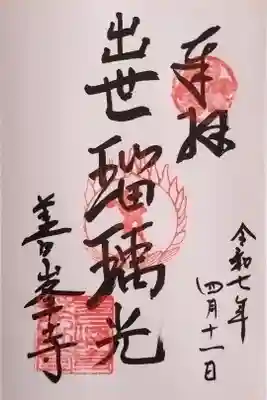 奉拝
令和七年
四月十一日
出世瑠璃光
善峯寺